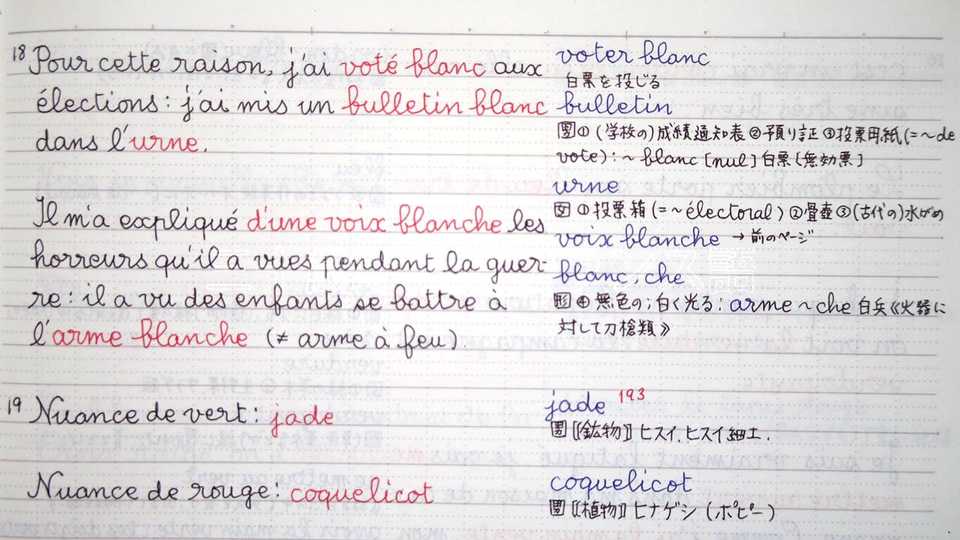 18 Pour cette raison, j'ai voté blanc aux
élections : j'ai mis un bulletin blanc
dans l'urne.
Il m'a expliqué d'une voix blanche les
horreurs qu'il a vues pendant la guer-
re : il a vu des enfants se battre à
l'arme blanche (≠ arme à feu).
19 Nuance de vert : jade
Nuance de rouge : coquelicot
voter blanc
白票を投じる
bulletin
男 ① (学校の) 成績通知表 ②預り証 ③投票用紙 (= ~ de
vote) : ~ blanc [nul] 白票 [無効票]
urne
女 ① 投票箱 (= ~ électoral) ②骨壺 ③(古代の) 水がめ
voix blanche → 前のページ
blanc, che
形 ④ 無色の ; 白く光る : arme ~che 白兵《火器に
対して刀槍類》
jade 193
男 [[鉱物]] ヒスイ, ヒスイ細工.
coquelicot
男 [[植物]] ヒナゲシ (ポピー)